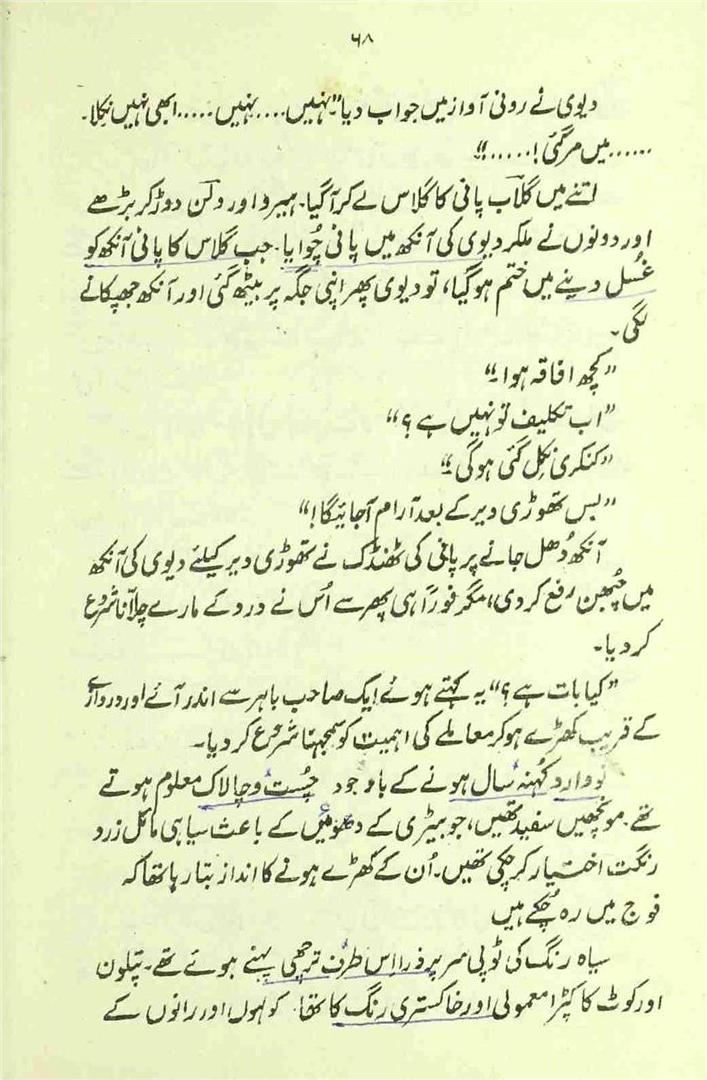 ۶۸
دیوی نے رونی آواز میں جواب دیا "نہیں.... نہیں..... ابھی نہیں نکلا۔
...... میں مرگئی!....."!
اتنے میں گلاب پانی کا گلاس لے کر آگیا۔ ہیرو اور ولن دوڑ کر بڑھے
اور دونوں نے ملکر دیوی کی آنکھ میں پانی چُوایا۔ جب گلاس کا پانی آنکھ کو
غُسل دینے میں ختم ہوگیا، تو دیوی پھر اپنی جگہ پر بیٹھ گئی اور آنکھ جھپکانے
لگی۔
"کچھ افاقہ ہوا۔"
"اب تکلیف تو نہیں ہے؟"
"کنکری نکل گئی ہوگی۔"
"بس تھوڑی دیر کے بعد آرام آجائیگا!"
آنکھ دُھل جانے پر پانی کی ٹھنڈک نے تھوڑی دیر کیلئے دیوی کی آنکھ
میں چُبھن رفع کر دی، مگر فوراً ہی پھر سے اُس نے درد کے مارے چلّانا شروع
کر دیا۔
"کیا بات ہے؟" یہ کہتے ہوئے ایک صاحب باہر سے اندر آئے اور دروازے
کے قریب کھڑے ہوکر معاملے کی اہمیت کو سمجھنا شروع کر دیا۔
نووارد کُہنہ سال ہونے کے باوجود چُست و چالاک معلوم ہوتے
تھے۔ مونچھیں سفید تھیں، جو بیڑی کے دھوئیں کے باعث سیاہی مائل زرد
رنگت اختیار کر چکی تھیں۔ اُن کے کھڑے ہونے کا انداز بتا رہا تھا کہ
فوج میں رہ چُکے ہیں
سیاہ رنگ کی ٹوپی سر پر ذرا اس طرف ترچھی پہنے ہوئے تھے۔ پتلون
اور کوٹ کا کپڑا معمولی اور خاکستری رنگ کا تھا۔ کولہوں اور رانوں کے